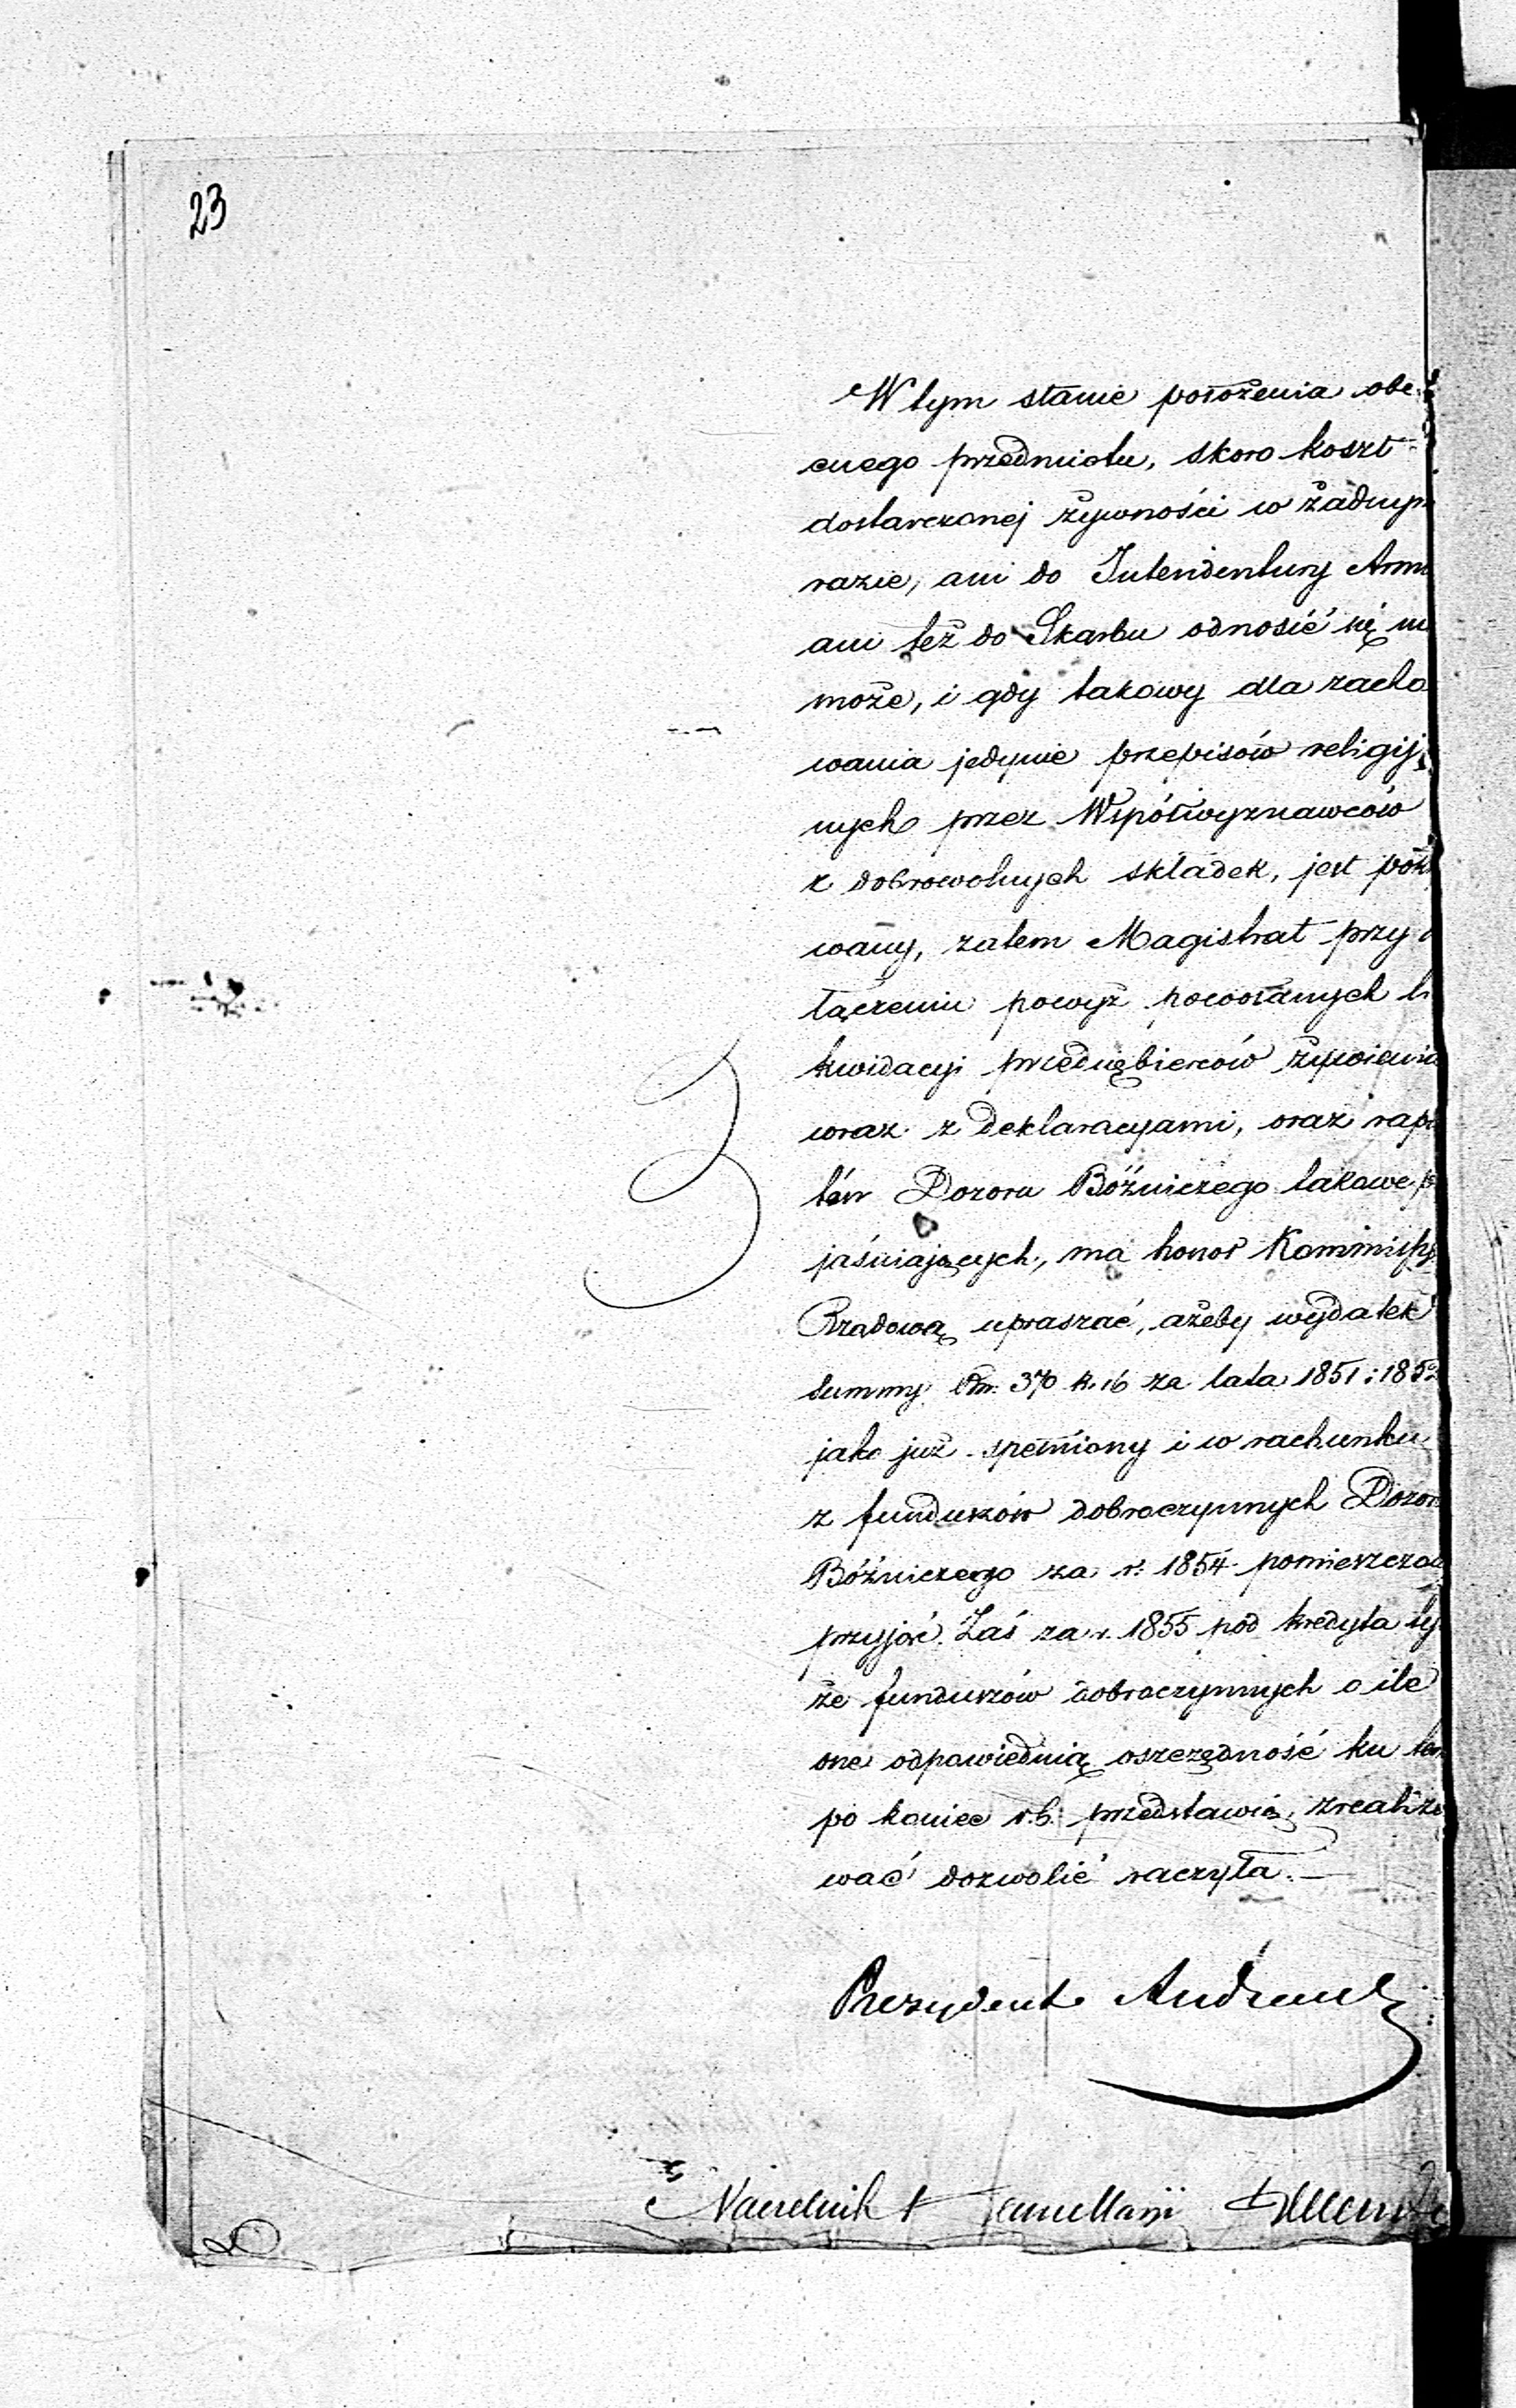 23
W tym stanie położenia obe-
cnego przedmiotu, skoro koszt
dostarczonej żywności w żadnym
razie, ani do Intendentury Arm
ani też do Skarbu odnosić się
może, i gdy takowy dla zacho
wania jedynie przepisów religij
nych przez Współwyznawców
z dobrowolnych składek, jest pok
wany, zatem Magistrat przy
łączeniu powyż powołanych li
kwidacyi przedsiębierców żywienia
wraz z deklaracyami, oraz rapo
tów Dozoru Bóżniczego takowe
jaśniających, ma honor Kommissy
Rządową upraszać, ażeby wydatek
summy Rsr. 370 k. 16 za lata 1851 i 185
jako już spełniony i w rachunku
z funduszów dobroczynnych Dozor
Bóżniczego za r. 1854 pomieszczo
przyjąć. Zaś za r. 1855 pod kredyta ty
że funduszów dobroczynnych o ile
one odpowiednią oszczędność ku tem
po koniec r. b. przedstawią, zrealizo
wać dozwolić raczyła.—
Prezydent
Naczelnik Kancellaryi